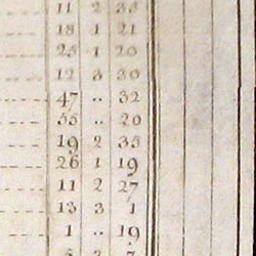 11 2 35
18 1 21
25 1 20
12 3 30
47 .. 32
35 .. 20
19 2 35
26 1 19
11 2 27
13 3 1
1 .. 19